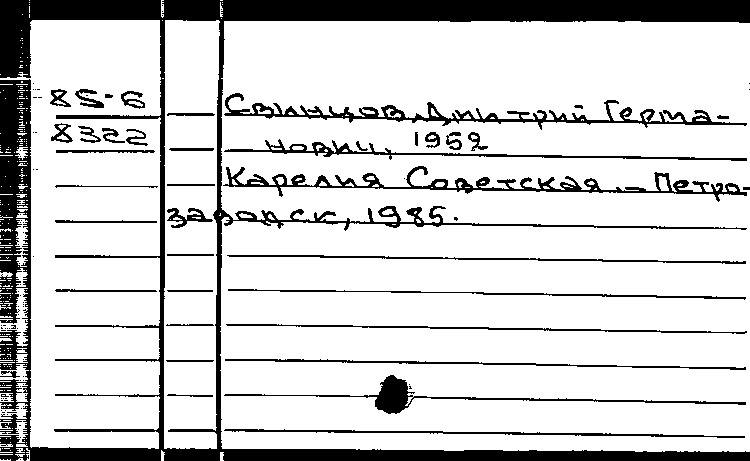 85-6
8322
Свинцов, Дмитрий Герма-
нович, 1952
Карелия Советская. – Петро-
заводск, 1985.